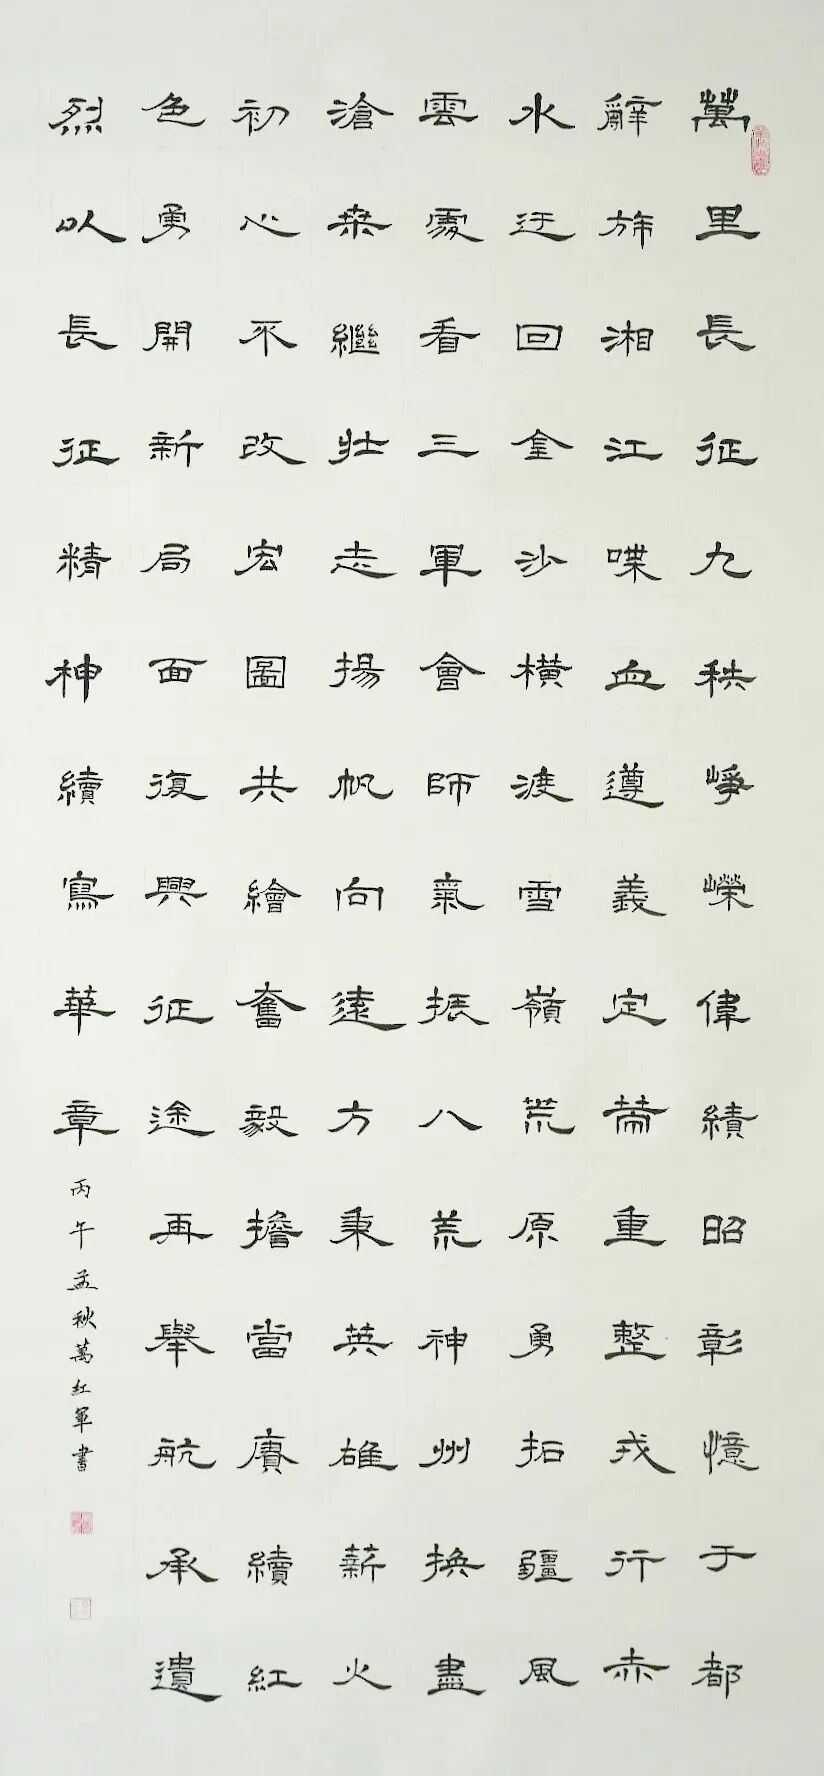 萬里長征九秩崢嶸偉績昭彰憶于都
辭旆湘江喋血遵義定幕重整戎行赤
水迂回金沙橫渡雪嶺荒原勇拓疆風
雲處看三軍會師氣振八荒神州換盡
滄桑繼壯志揚帆向遠方秉英雄薪火
初心不改宏圖共繪奮毅擔當賡續紅
色勇開新局面復興征途再舉航承遺
烈以長征精神續寫華章
丙午孟秋萬紅軍書